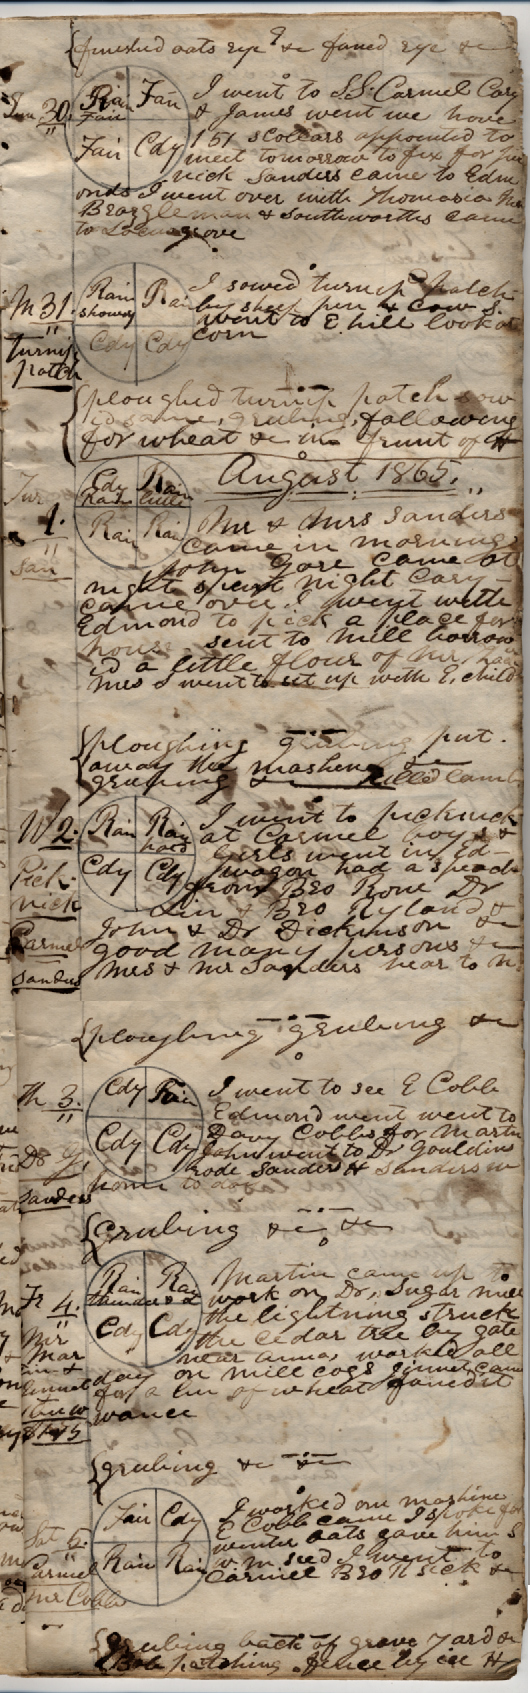 finished oats rye & c faned rye & c
Sun 30.
Rain Fair
Fair
Fair
Cdy
I went to S.S. Carmel Cary
& James went we have
151 scolears appointed to
meet tomorrow to fix for pic
nick Sanders came to Edm
onds I went over with Thomasia Mr
& Southworths came
to Locus grove
M 31.
turnip
patch
Rain showery
Rain
Cdy
Cdy
I sowed turnip patch
by sheep pen & cow S.
went to E hill look at
corn
ploughed turnip patch sow
ed same, grubing, following
for wheat & c in frunt of H
August 1865.
1.
Cdy Rain
Rain little
Rain
Rain
Mr & Mrs Sanders
came in morning
John Gore came at
night spent night Cary
came over. I went with
Edmond to pick a place for
house. sent to mill borrow
ed a little flour of Mr
Mrs I went to set up with E. child
ploughing grubing put
away the mashene
grubing & c killed lamb
W 2.
Pick
nick
Carmel
Sanders
Rain
Rain hard
Cdy
Cdy
I went to picknick
at Carmel boys &
Girls went in Ed
wagon had a speach
from Bro Rowe Dr
Lin & Bro Ryland &
John & Dr Dickinson & c
good many persons & c
Mrs & Mr Sanders near to n
ploughing grubing & c
Th 3.
Dr G.
Sanders
Cdy
Rain
Cdy
Cdy
I went to see E Cobb
Edmond went went to
Davy Cobbs for Martin
John went to Dr Gouldins
rode Sanders H Sanders w
home to day
Grubing & c & c
Fr 4.
Mr
Mar
tin &
Jinnet
Rain thunder & l
Rain
Cdy
Cdy
Martin came up to
work on Dr, Sugar mill
the lightning struck
the cedar tree by gate
near annas worked all
day on mill cogs Jinnet came
for a of wheat faned it
Grubing & c
Sat 5.
Carmel
Mr Cobbs
Fair
Cdy
Rain
Rain
I worked on mashine
E Cobb came I spoke for
winter oats gave him S
w.m. seed I went to
Carmel Bro H sick & c
Grubing back of grave yard &
Bob patching fence by ice H